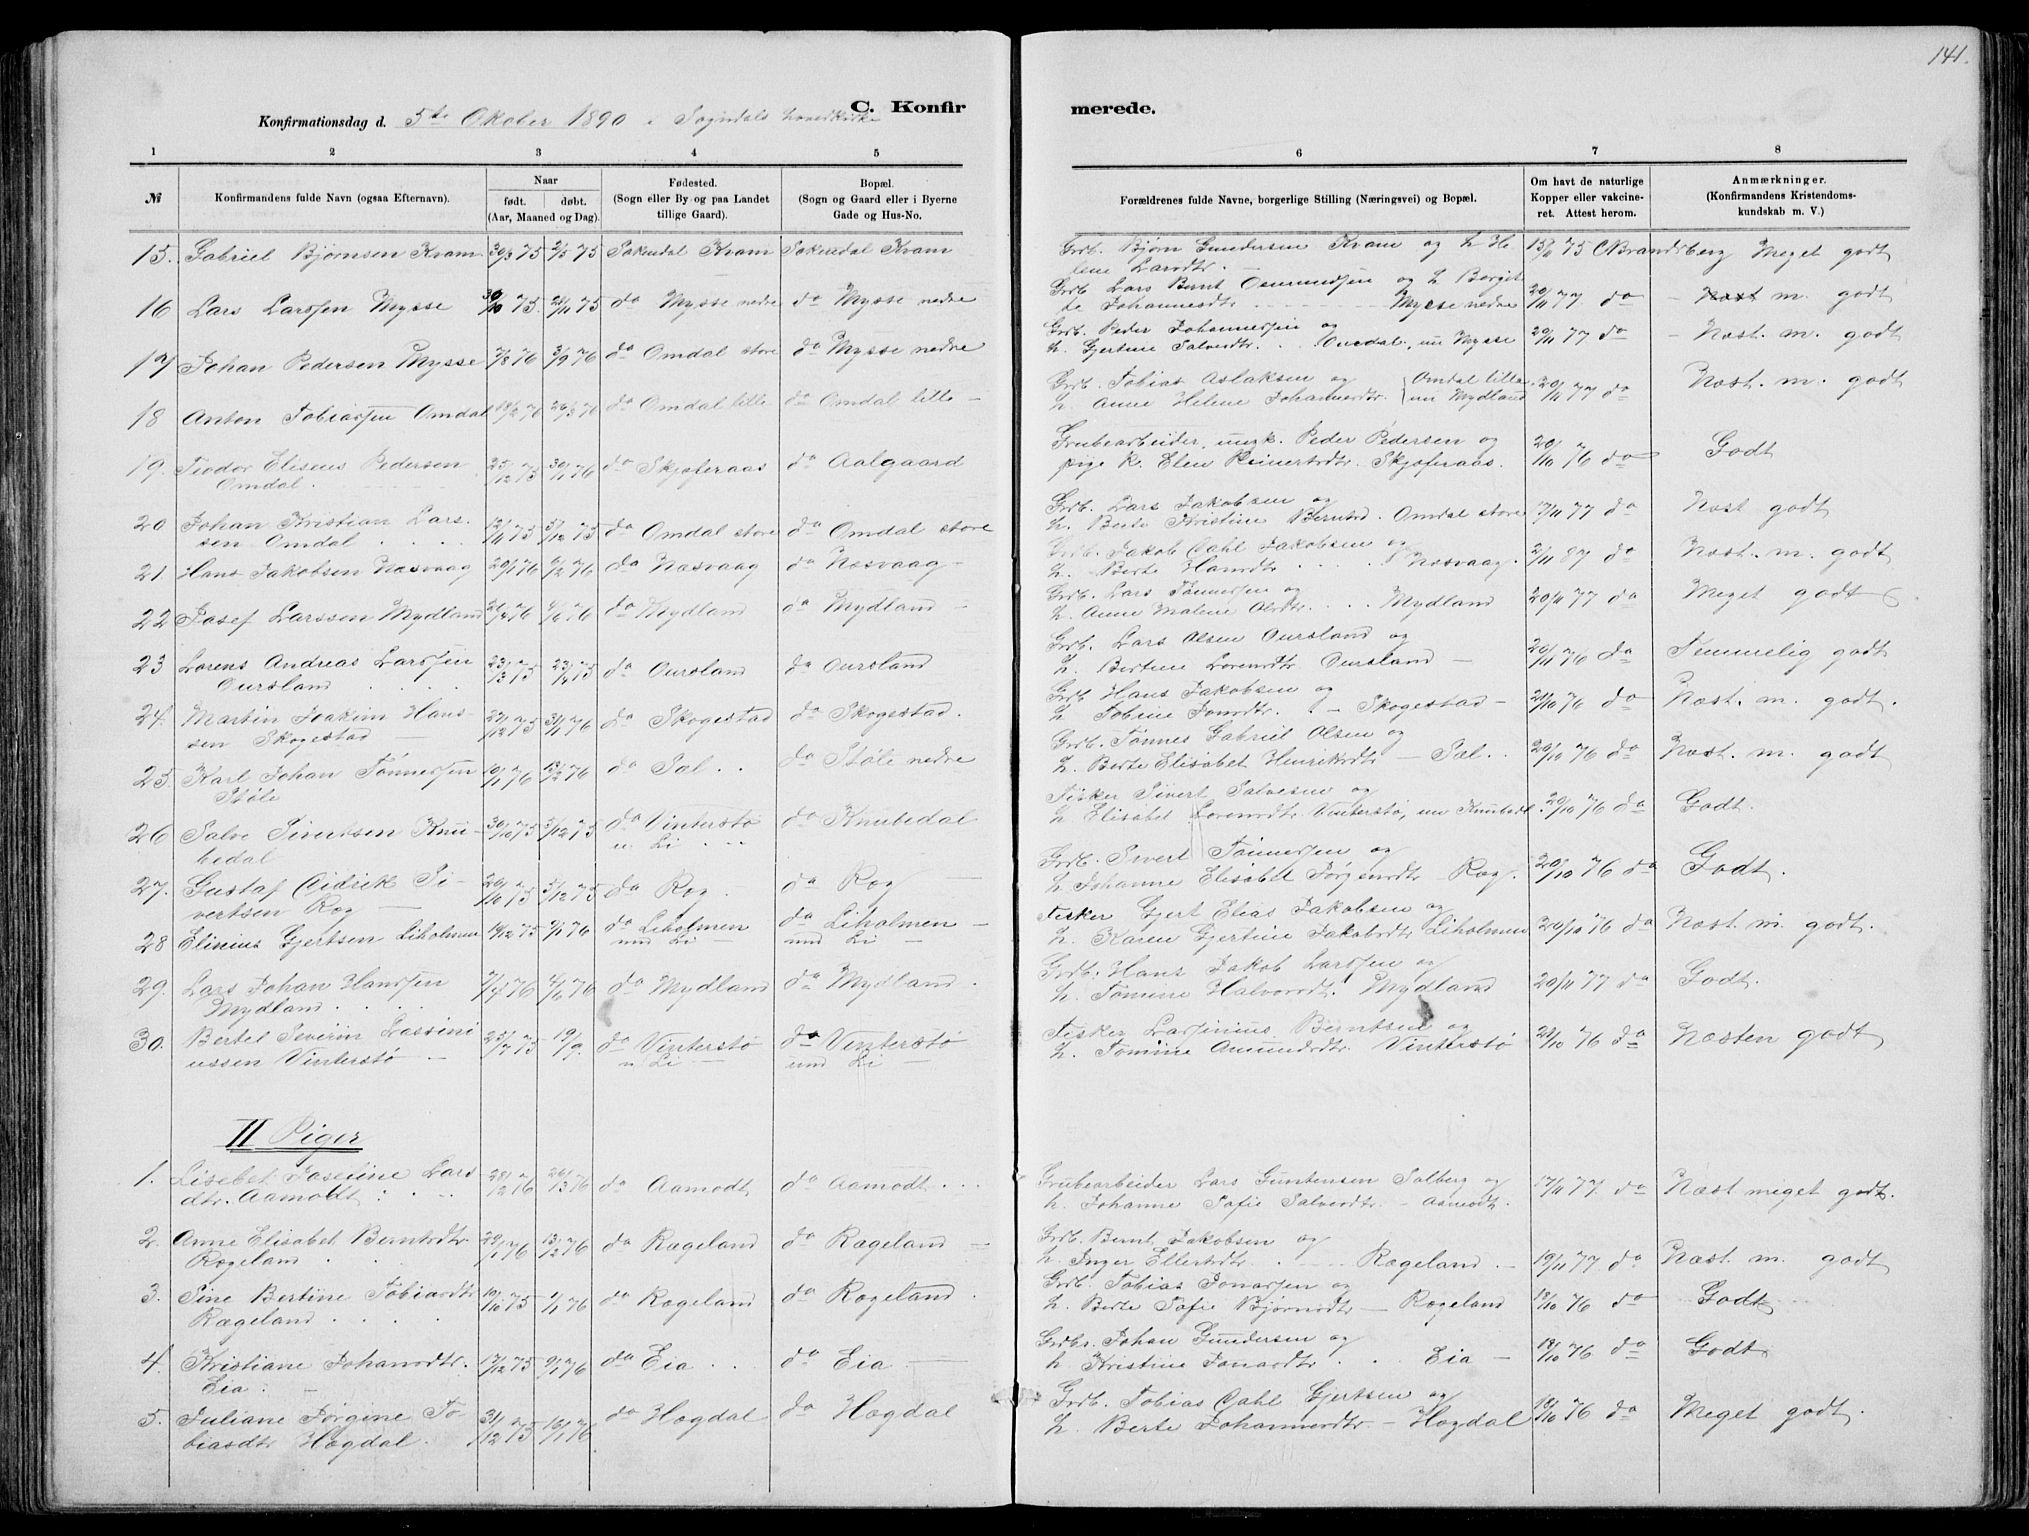 141.
C. Konfirmerede.
Konfirmationsdag d. 5te Oktober 1890 i Sogndals hovedkirke
1 2 3 4 5 6 7 8
№
Konfirmandens fulde Navn (ogsaa Efternavn).
Naar
født. døbt.
(Aar, Maaned og Dag).
Fødested.
(Sogn eller By og paa Landet
tillige Gaard).
Bopæl.
(Sogn og Gaard eller i Byerne
Gade og Hus-No.
Forældrenes fulde Navne, borgerlige Stilling (Næringsvei) og Bopæl.
Om havt de naturlige
Kopper eller vakcine-
ret. Attest herom.
Anmærkninger.
(Konfirmandens Kristendoms-
kundskab m. V.)
15. Gabriel Bjørnsen Kvam 30/3 75 2/5 75 Sokndal Kvam Sokndal Kvam Grdb. Bjørn Gundersen Kvam og h. He
lene Larsdtr. 75 C Brandsberg Meget godt
16 Lars Larssen Mysse 30/10 75. 21/11 75 do Mysse nedre do Mysse nedre Grdb. Lars Bernt Osmundsen og h. Bergit
te Johannesdtr Mysse nedre 20/11 77. do m. godt
17 Johan Pedersen Mysse 7/8 76 3/9 76 do Omdal store do Mysse nedre Grdb. Peder Johannessen og
h. Gjertine Salvesdtr. Omdal, nu Mysse 20/11 77 do Næst. m. godt
18 Anton Tobiassen Omdal 18/2 76 26/3 76 do Omdal lille do Omdal lille Grdb. Tobias Aslaksen og
h. Anne Helene Johannesdtr. Omdal lille
nu Mydland 20/11 77 do Næst. m. godt
19. Teodor Eliseus Pedersen
Omdal. 25/12 75 30/1 76 do Skjoferaas do Aalgaard Grubearbeider, ungk. Peder Pedersen og
pige k. Elen Reinertsdtr. Skjoferaas. 20/10 76 do Godt
20 Johan Kristian Lars-
sen Omdal 12/11 75 5/12 75 do Omdal store do Omdal store Grdb. Lars Jakobsen og
h. Berte Kristine Berntsd. Omdal store 17/11 77 do Næst godt
21 Hans Jakobsen Næsvaag 20/1 76 6/2 76 do Næsvaag do Næsvaag Grdb. Jakob Cahl Jakobsen og
h. Berte Hansdtr Næsvaag. 2/11 87 do Næst. m. godt
22 Josef Larssen Mydland 21/4 76 4/6 76 do Mydland do Mydland Grdb. Lars Tønnessen og
h. Anne Malene Olsdtr. Mydland 20/11 77 do Meget godt
23 Lorens Andreas Larssen
Oursland 23/3 75 23/4 75 do Oursland do Oursland Grdb. Lars Olsen Oursland og
h. Bertine Lorensdtr. Oursland 20/11 76 do Temmelig godt
24. Martin Joakim Hans-
sen Skogestad 27/12 75 31/1 76 do Skogestad do Skogestad. Grdb. Hans Jakobsen og
h. Tobine Jonsdtr. Skogestad 21/10 76 do Næst. m. godt.
25. Karl Johan Tønnessen
Støle 10/1 76 13/2 76 do Sæl do Støle nedre Grdb. Tønnes Gabriel Olsen og
h. Berte Elisabet Henriksdtr Sæl. 20/10 76 do Næst. m. godt
26 Salve Sivertsen Knu-
bedal 30/10 75 5/12 75 do Vinterstø
u. Li do Knubedal Fisker Sivert Salvesen og
h. Elisabet Lorensdtr. Vinterstø, nu Knubedl. 20/10 76 do Godt.
27. Gustaf Cidrik Si-
vertsen Røg 20/10 75 5/12 75 do Røg. do Røg Grdb. Sivert Tønnessen og
h. Johanne Elisabet Jørgensdtr Røg. 20/10 76 do Godt.
28 Elinius Gjertsen Liholmen 19/12 75 9/1 76 do Liholmen
und Li do Liholmen
und Li Fisker Gjert Elias Jakobsen og
h. Karen Gjertine Jakobsdtr Liholmen 20/10 76 do Næst m. godt.
29. Lars Johan Hanssen
Mydland 7/4 76 4/6 76 do Mydland do Mydland. Grdb. Hans Jakob Larssen og
h. Tomine Halvorsdtr. Mydland 20/11 77 do Godt.
30. Bertel Severin Lassini
ussen Vinterstø 25/7 75 19/9. do Vinterstø
u Li do Vinterstø
und Li Fisker Larsinius Berntsen og
h. Tomine Amundsdtr. Vinterstø 21/10 76 do Næsten godt
II Piger
1. Lisebet Joseline Lars
dtr. Aamodt 28/12 76 26/3 76 do Aamodt do Aamodt Grubearbeider Lars Guntensen Salberg og
h. Johanne Sofie Salvesdtr. Aamodt. 17/11 77. do Næst meget godt.
2. Anne Elisabet Berntsdtr
Rægeland 29/1 76 13/2 76 do Rægeland do Rægeland Grdb. Bernt Jakobsen og
h. Inger Ellertsdtr. Rægeland. 19/11 77 do Næst. m. godt
3. Sine Bertine Tobiasdtr
Rægeland 10/10 75 1/1 76 do Rægeland do Rægeland. Grdb. Tobias Jonassen og
h. Berte Sofie Bjørnsdtr Rægeland 18/10 76 do Godt
4. Kristiane Johansdtr.
Eia. 17/12 75 9/1 76 do Eia do Eia Grdbr. Johan Gundersen og
h Kristine Jonasdtr. Eia 18/10 76 do Godt
5. Juliane Jørgine To
biasdtr Hogdal. 31/12 75 16/1 76 do Hogdal do Hogdal Grdb. Tobias Cahl Gjertsen og
h. Berte Johannesdtr. Hogdal 18/10 76 do Meget godt.